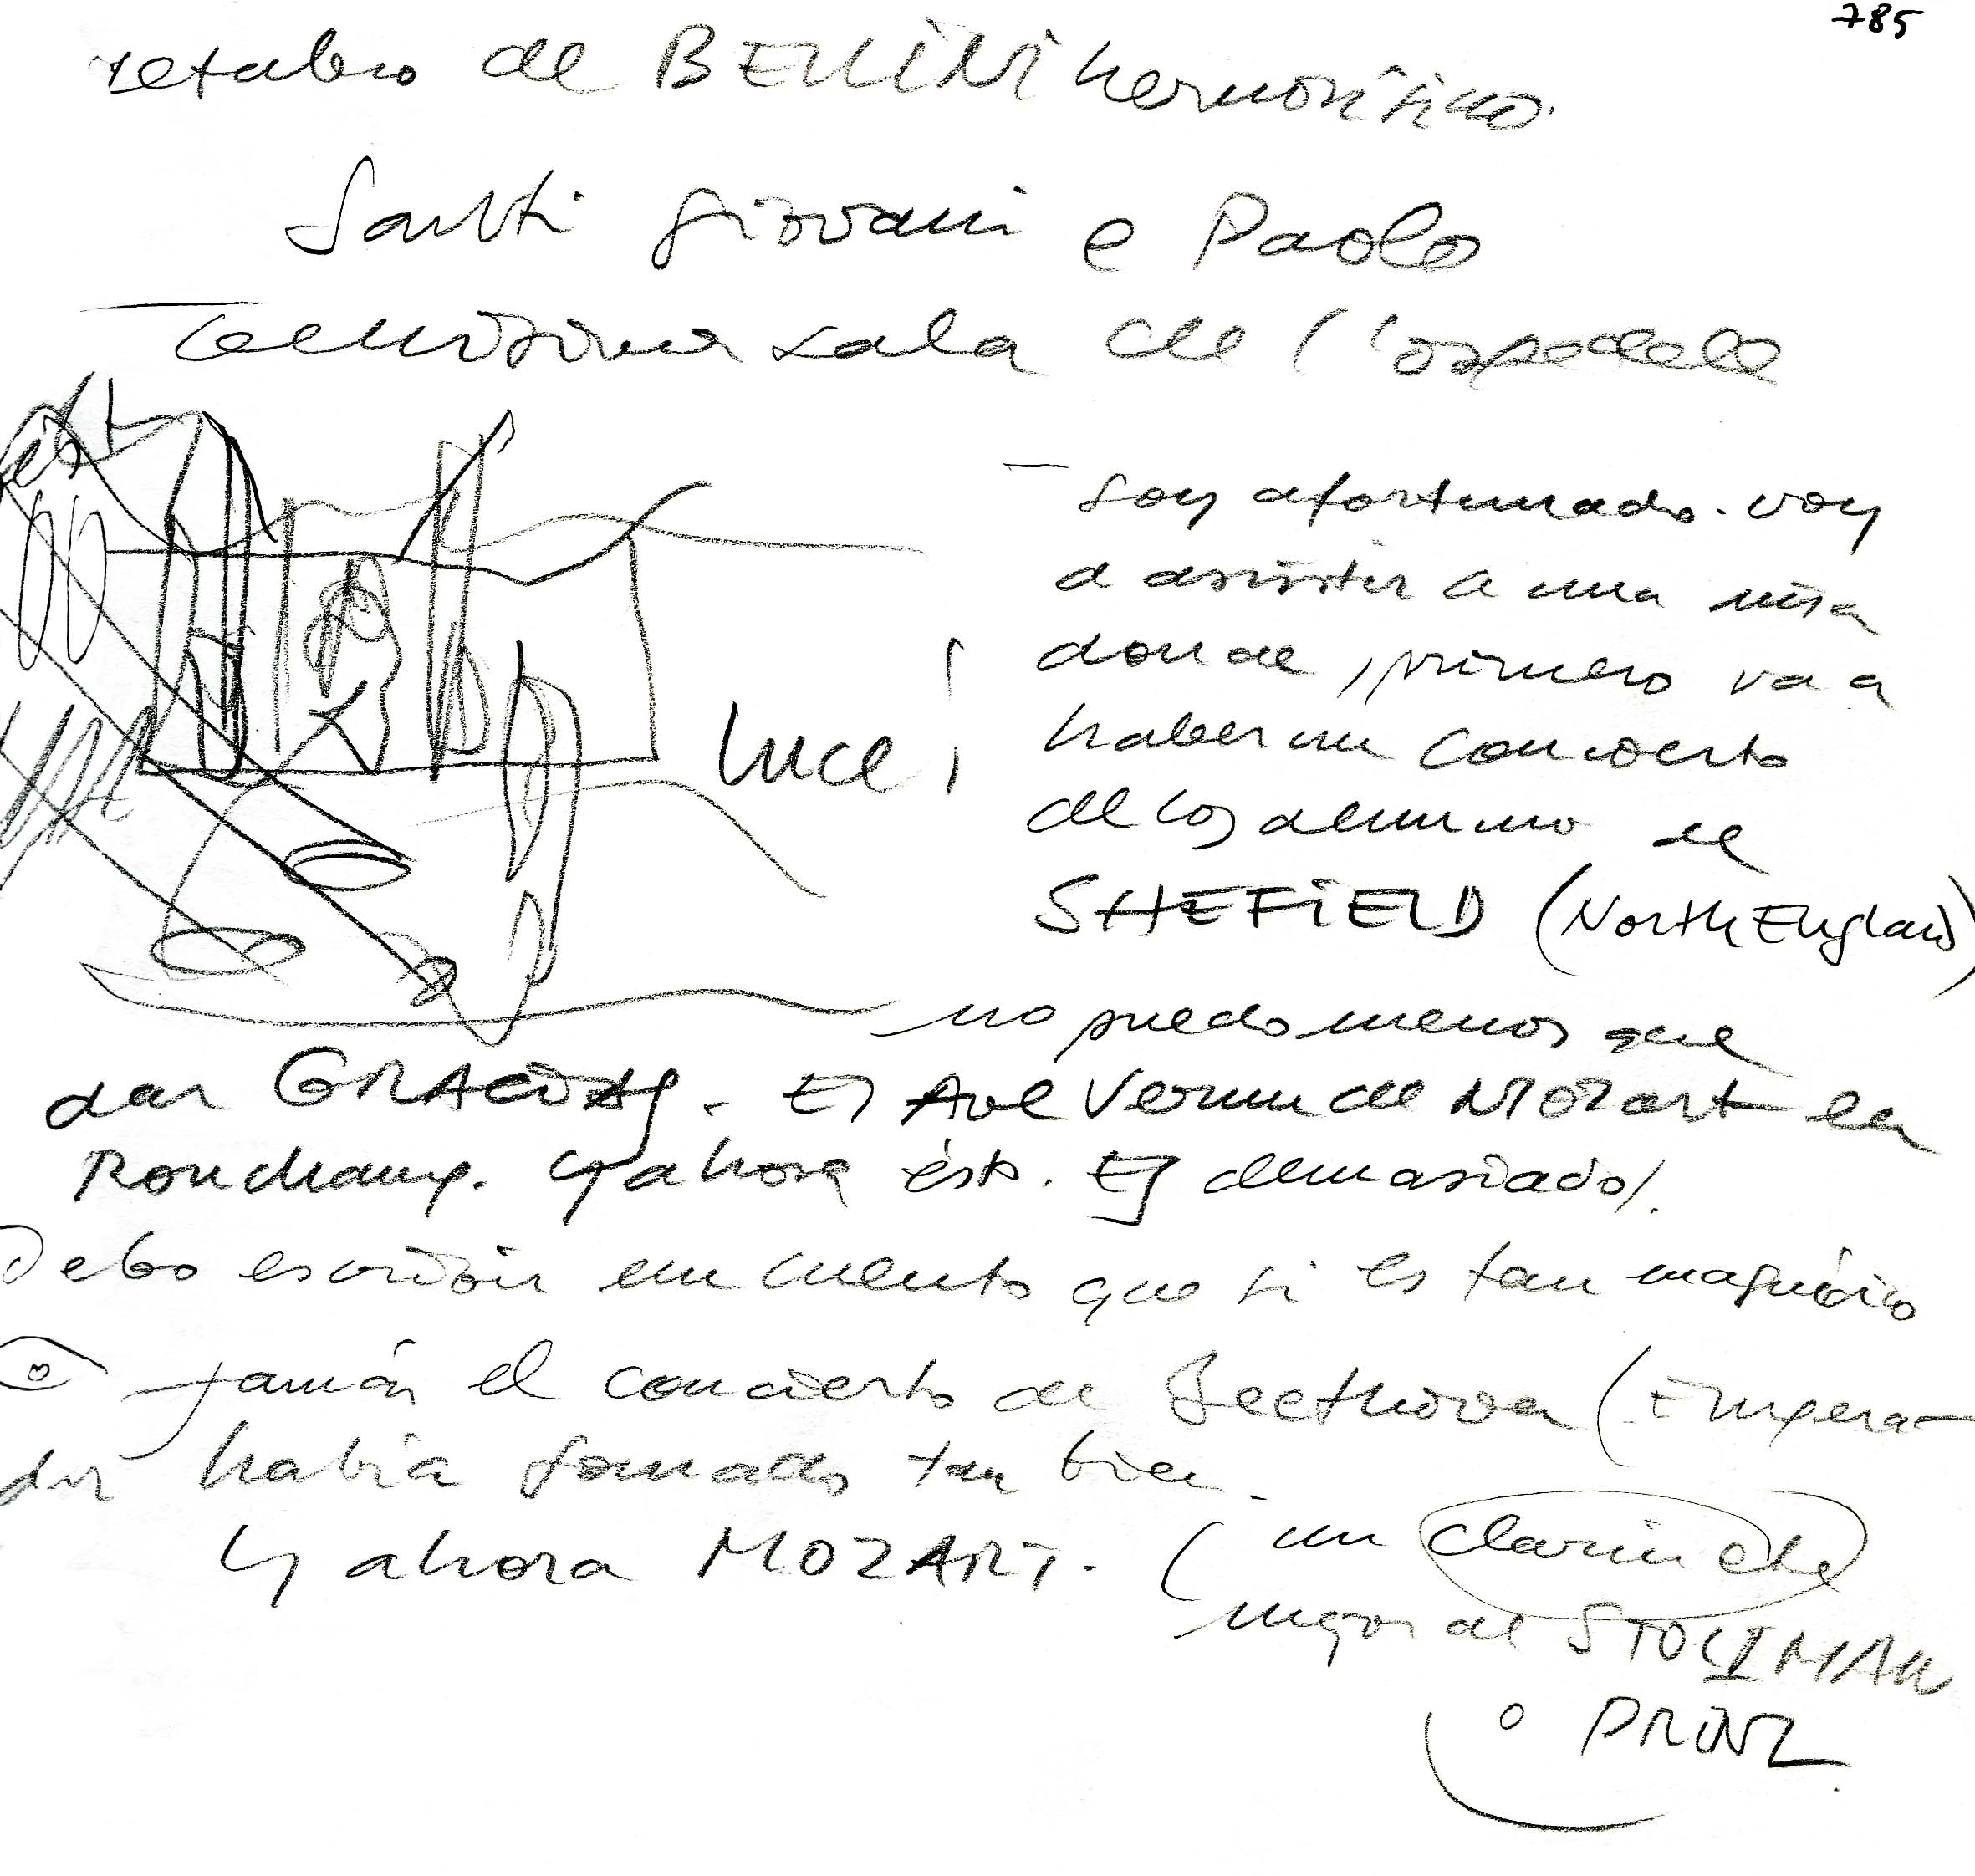 785
retablo de BELLINI hermosísimo.
Santi Giovani e Paolo
sala de l'ospedale
– Soy afortunado. voy
a asistir a una misa
donde, primero va a
haber un concierto
de los alumno de
SHEFIELD (North England)
luce¡
no puedo menos que
dar GRACIAS. El Ave Verum de Mozart en
Ronchamp. Y ahora ésto. Es demasiado/.
Debo escribir un cuento que si es tan magnífico
jamás el concierto de Beethoven (Empera-
dor había sonado tan bien.
Y ahora MOZART. (un clarinete
mejor de STOLZMAN
o PRINZ